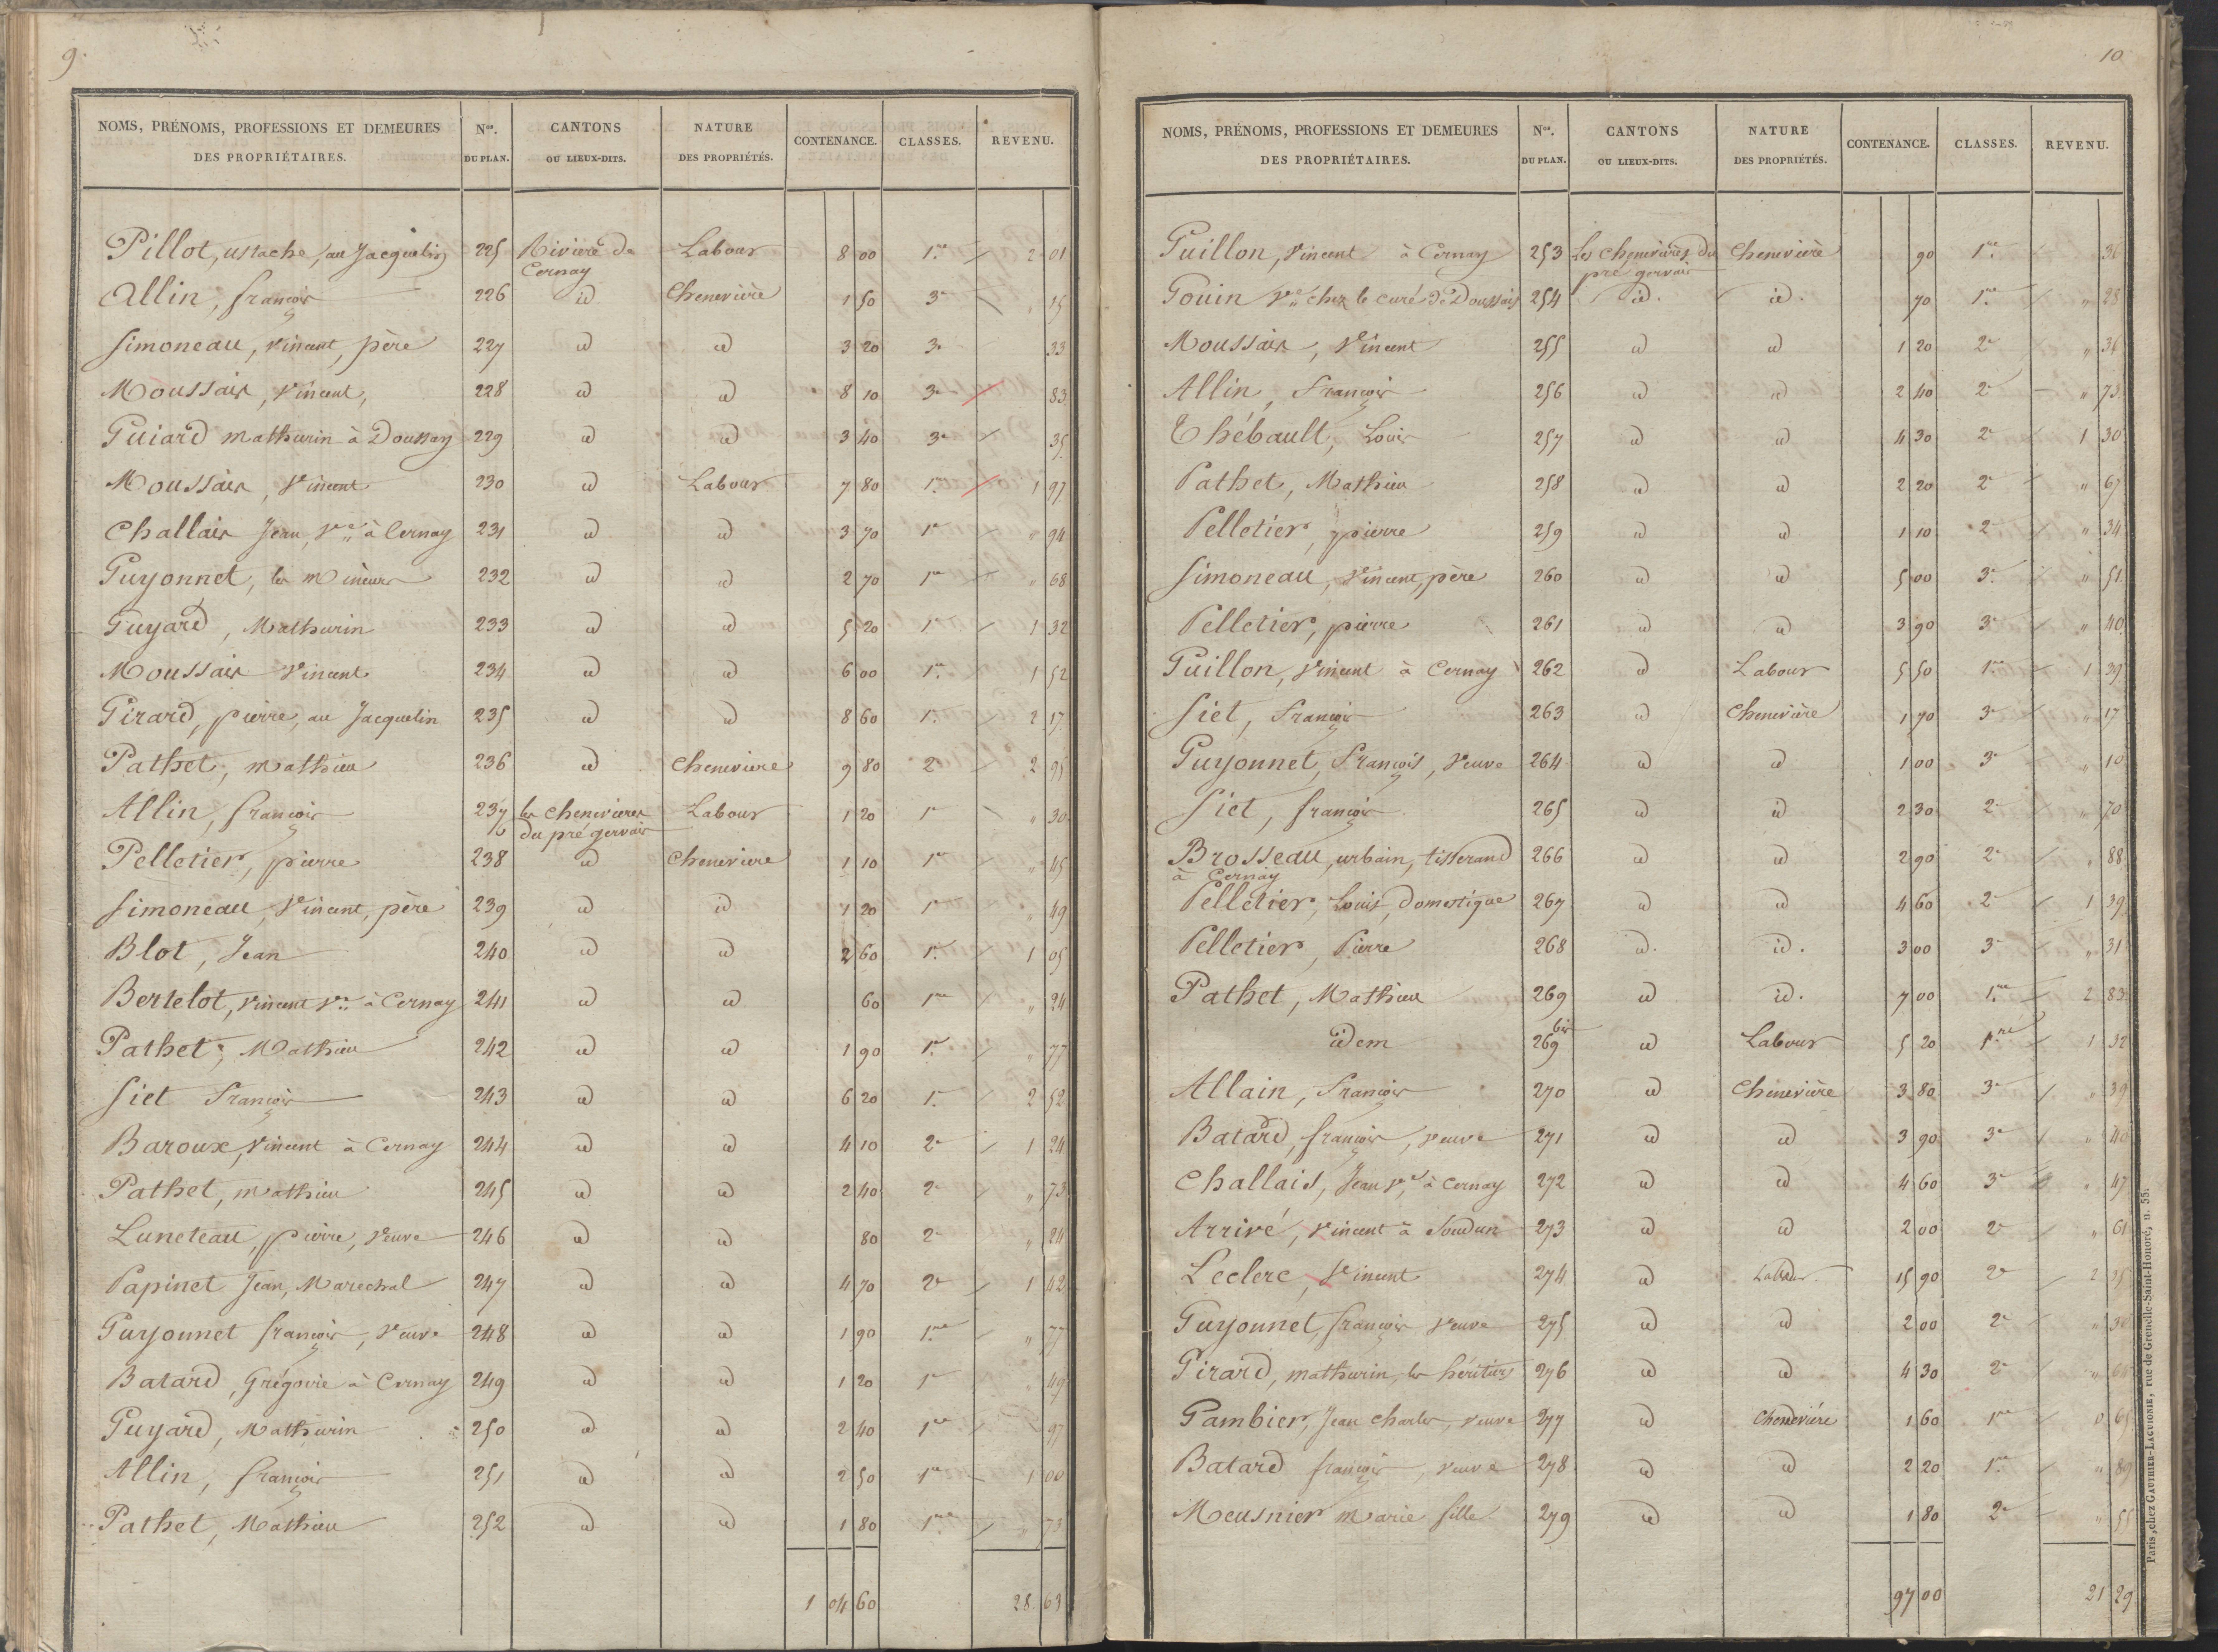 9.
NOMS, PRÉNOMS, PROFESSIONS ET DEMEURES DES PROPRIÉTAIRES. Nos. DU PLAN. CANTONS OU LIEUX-DITS. NATURE DES PROPRIÉTÉS. CONTENANCE. CLASSES. REVENU.
Pillot, ustache, au Jacquelin 225 Rivière de Cernay Labour 8 00 1re 2 01
Allin, françois 226 id Chenevière 1 50 3e 15
Simoneau, Vincent, père 227 id id 3 20 3e 33
Moussais, Vincent, 228 id id 8 10 3e 83
Guiard mathurin à Doussay 229 id id 3 40 3e 35
Moussais, Vincent 230 id Labour 7 80 1re 1 97
Challais Jean, Ve à Cernay 231 id id 3 70 1re " 94
Guyonnet, les mineurs 232 id id 2 70 1re " 68
Guyard, Mathurin 233 id id 5 20 1re 1 32
Moussais Vincent 234 id id 6 00 1re 1 52
Girard, pierre, au Jacquelin 235 id id 8 60 1re 2 17
Pathet, mathieu 236 id Chenevière 9 80 2e 2 95
Allin, françois 237 les Chenevieres du pré gervais Labour 1 20 1re " 30
Pelletier, pierre 238 id Chenevière 1 10 1re " 45
Simoneau, Vincent, père 239 id id 1 20 1re " 49
Blot, Jean 240 id id 2 60 1re 1 05
Bertelot, Vincent Ve à Cernay 241 id id 60 1re " 24
Pathet, Mathieu 242 id id 1 90 1re " 77
Siet François 243 id id 6 20 1re 2 52
Baroux, Vincent à Cernay 244 id id 4 10 2e 1 24
Pathet, mathieu 245 id id 2 40 2e " 73
Luneteau, pierre, Veuve 246 id id 80 2e " 24
Papinet Jean, Marechal 247 id id 4 70 2e 1 42
Guyonnet françois, Veuve 248 id id 1 90 1re " 77
Batard, Grégoire à Cernay 249 id id 1 20 1re " 49
Guyard, Mathurin 250 id id 2 40 1re 97
Allin, françois 251 id id 2 50 1re 1 00
Pathet, Mathieu 252 id id 1 80 1re 73
1 04 60 28 63
10
NOMS, PRÉNOMS, PROFESSIONS ET DEMEURES DES PROPRIÉTAIRES. Nos. DU PLAN. CANTONS OU LIEUX-DITS. NATURE DES PROPRIÉTÉS. CONTENANCE. CLASSES. REVENU.
Guillon, Vincent à Cernay 253 Les Chenevières du pré gervais Chenevière 90 1re 36
Gouin Ve chez le curé de Doussais 254 id. id. 70 1re " 28
Moussais, Vincent 255 id id 1 20 2e " 36
Allin, François 256 id id 2 40 2e " 73
Thébault, Louis 257 id id 4 30 2e 1 30
Pathet, Mathieu 258 id id 2 20 2e " 67
Pelletier, pierre 259 id id 1 10 2e " 34
Simoneau, Vincent, père 260 id id 5 00 3e " 51
Pelletier, pierre 261 id id 3 90 3e " 40
Guillon, Vincent à Cernay 262 id Labour 5 50 1re 1 39
Siet, François 263 id Chenevière 1 70 3e " 17
Guyonnet, François, Veuve 264 id id 1 00 3e " 10
Siet, françois 265 id id 2 30 2e " 70
Brosseau, urbain, tisserand à Cernay 266 id id 2 90 2e " 88
Pelletier, Louis, Domestique 267 id id 4 60 2e 1 39
Pelletier, Pierre 268 id. id. 3 00 3e " 31
Pathet, Mathieu 269 id id. 7 00 1re 2 83
idem 269 bis id Labour 5 20 1re 1 32
Allain, François 270 id Chenevière 3 80 3e " 39
Batard, françois, veuve 271 id id 3 90 3e " 40
Challais, Jean Ve à Cernay 272 id id 4 60 3e " 47
Arrivé, Vincent à Soudun 273 id id 2 00 2e " 61
Leclerc, Vincent 274 id Labour 15 90 2e 2
Guyonnet, françois Veuve 275 id id 2 00 2e " 30
Girard, mathurin, les héritiers 276 id id 4 30 2e "
Gambier, Jean Charles, veuve 277 id Chenevière 1 60 1re 0 65
Batard françois, veuve 278 id id 2 20 1re " 89
Meusnier marie fille 279 id id 1 80 2e " 55
97 00 21 29
Paris, chez GAUTHIER-LAGUIONIE, rue de Grenelle-Saint-Honoré, n. 55.